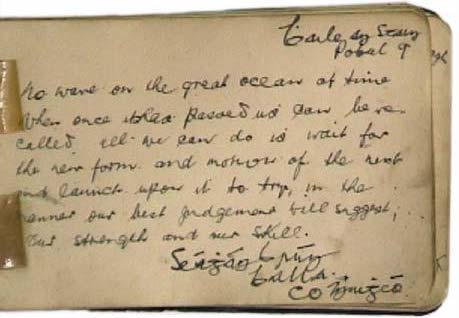 No wave on the great ocean of time
When once it has passed us can be re-
called all we can do is wait for
the new form and motion of the next
and launch upon it to try, in the
manner our best judgement will suggest;
our strength and our skill.
Balla.